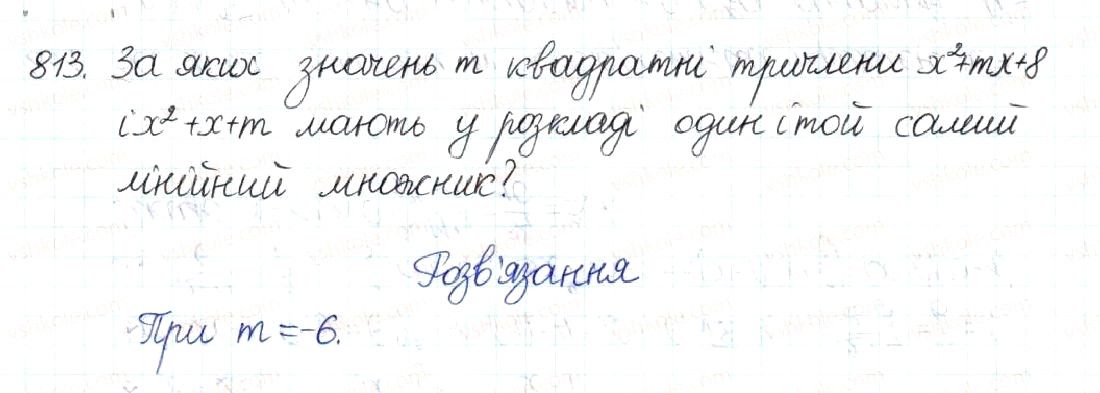 813. За яких значень m квадратні тричлени x²+mx+8
і x²+x+m мають у розкладі один і той самий
лінійний множник?
Розв'язання
При m=-6.